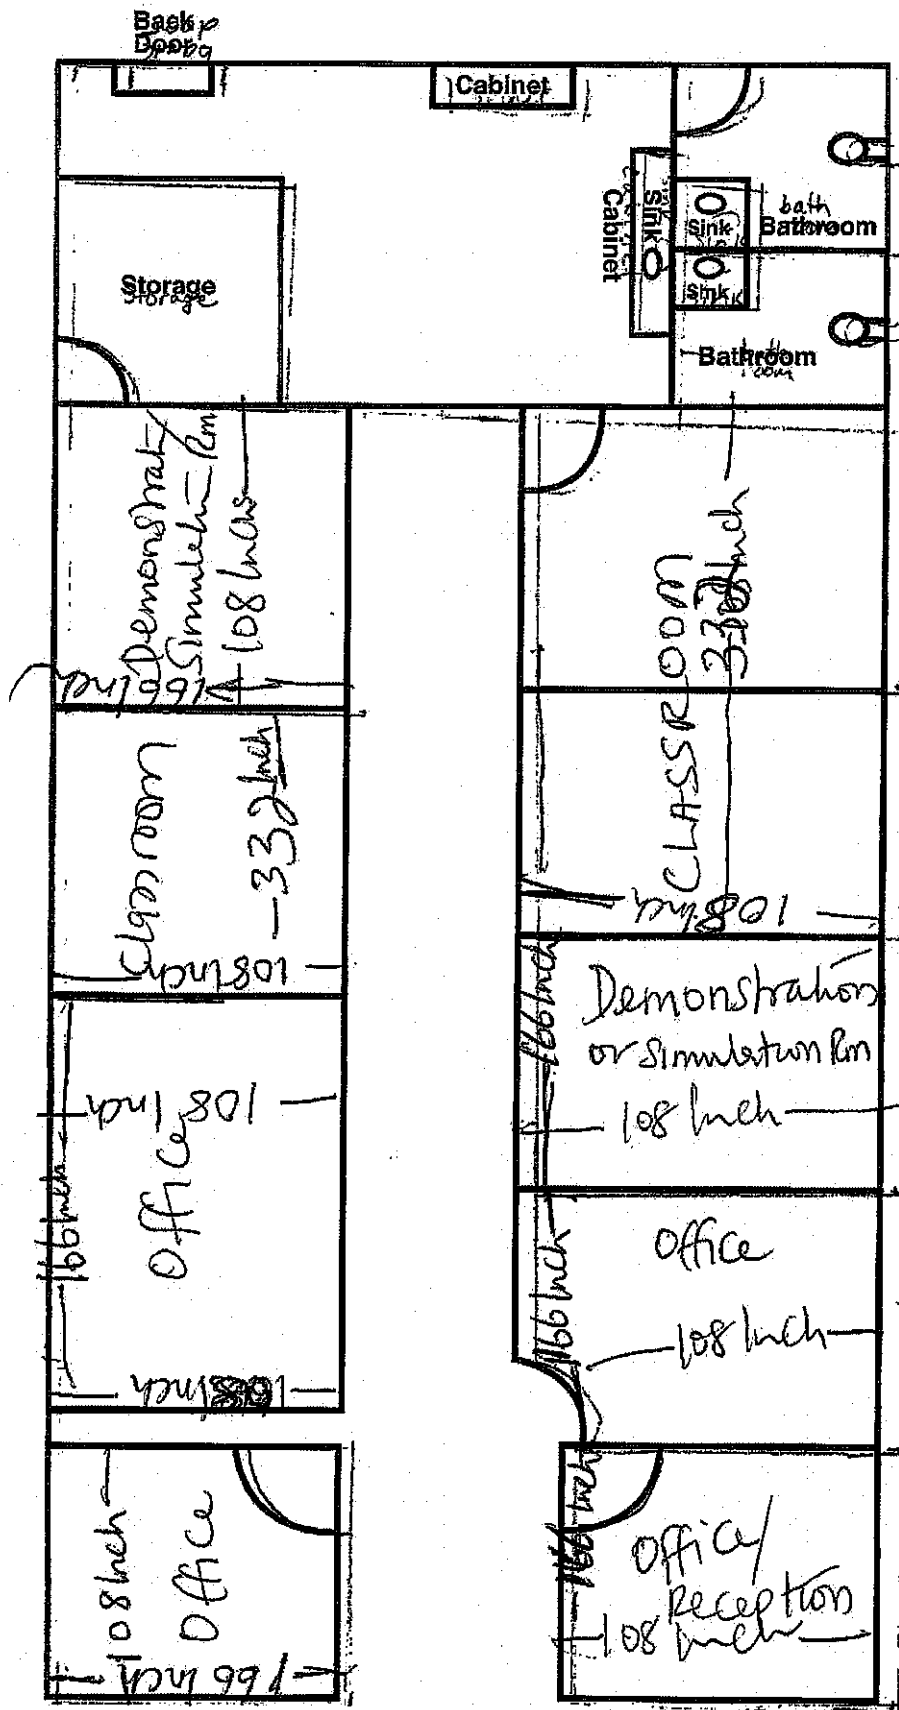 Back
Door
Cabinet
Sink
Cabinet
Sink
bath
Bathroom
Sink
Storage
storage
Bathroom
room
Demonstrat/
Simulatn Rm
108 Inchs
166 Inch
Classroom
332 Inch
108 Inch
108 Inch
Office
166 Inch
Inch
108 Inch
Office
166 Inch
CLASSROOM
332
Inch
108 Inch
166 Inch
Demonstration
or Simulation Rm
108 Inch
Office
166 Inch
108 Inch
166 Inch
Office/
Reception
108 Inch